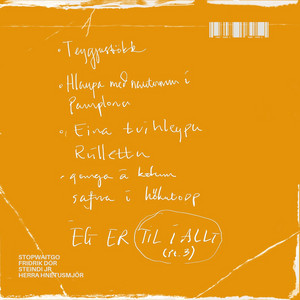 • Teygjustökk
• Hlaupa með nautunum í
Pamplona
• Eina tvíhleypu
Rúllettu
• ganga á kolum
safna í hökutopp
ÉG ER TIL Í ALLT
(pt. 3)
STOPWAITGO
FRIÐRIK DÓR
STEINDI JR
HERRA HNETUSMJÖR